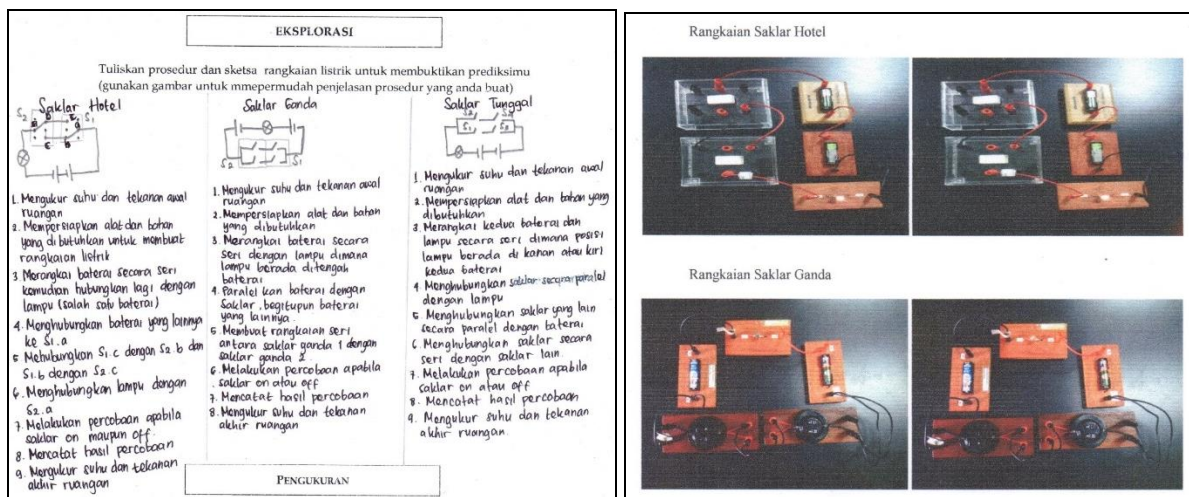 EKSPLORASI
Tuliskan prosedur dan sketsa rangkaian listrik untuk membuktikan prediksimu
(gunakan gambar untuk mmepermudah penjelasan prosedur yang anda buat)
Saklar Hotel
S2
S1
1. Mengukur suhu dan tekanan awal
ruangan
2. Mempersiapkan alat dan bahan
yang dibutuhkan untuk membuat
rangkaian listrik
3. Merangkai baterai secara seri
kemudian hubungkan lagi dengan
lampu (salah satu baterai)
4. Menghubungkan baterai yang lainnya
ke S1.a
5 Mehubungkan S1.c dengan S2.b dan
S1.b dengan S2.c
6. Menghubungkan lampu dengan
S2.a
7. Melakukan percobaan apabila
saklar on maupun off.
8. Mencatat hasil percobaan
9. Mengukur suhu dan tekanan
akhir ruangan
Saklar Ganda
S2
S1
1. Mengukur suhu dan tekanan awal
ruangan
2. Mempersiapkan alat dan bahan
yang dibutuhkan
3. Merangkai baterai secara
seri dengan lampu dimana
lampu berada ditengah
baterai
4. Paralel kan baterai dengan
saklar, begitupun baterai
yang lainnya.
5. Membuat rangkaian seri
antara saklar ganda 1 dengan
saklar ganda 2
6. Melakukan percobaan apabila
saklar on atau off
7. Mencatat hasil percobaan
8. Mengukur suhu dan tekanan
akhir ruangan
Saklar Tunggal
1. Mengukur suhu dan tekanan awal
ruangan
2. Mempersiapkan alat dan bahan yang
dibutuhkan
3. Merangkai kedua baterai dan
lampu secara seri dimana posisi
lampu berada di kanan atau kiri
kedua baterai
4. Menghubungkan saklar secara paralel
dengan lampu
5. Menghubungkan saklar yang lain
secara paralel dengan baterai
6. Menghubungkan saklar secara
seri dengan saklar lain.
7. Melakukan percobaan apabila
saklar on atau off
8. Mencatat hasil percobaan
9. Mengukur suhu dan tekanan
akhir ruangan.
PENGUKURAN
Rangkaian Saklar Hotel
Rangkaian Saklar Ganda